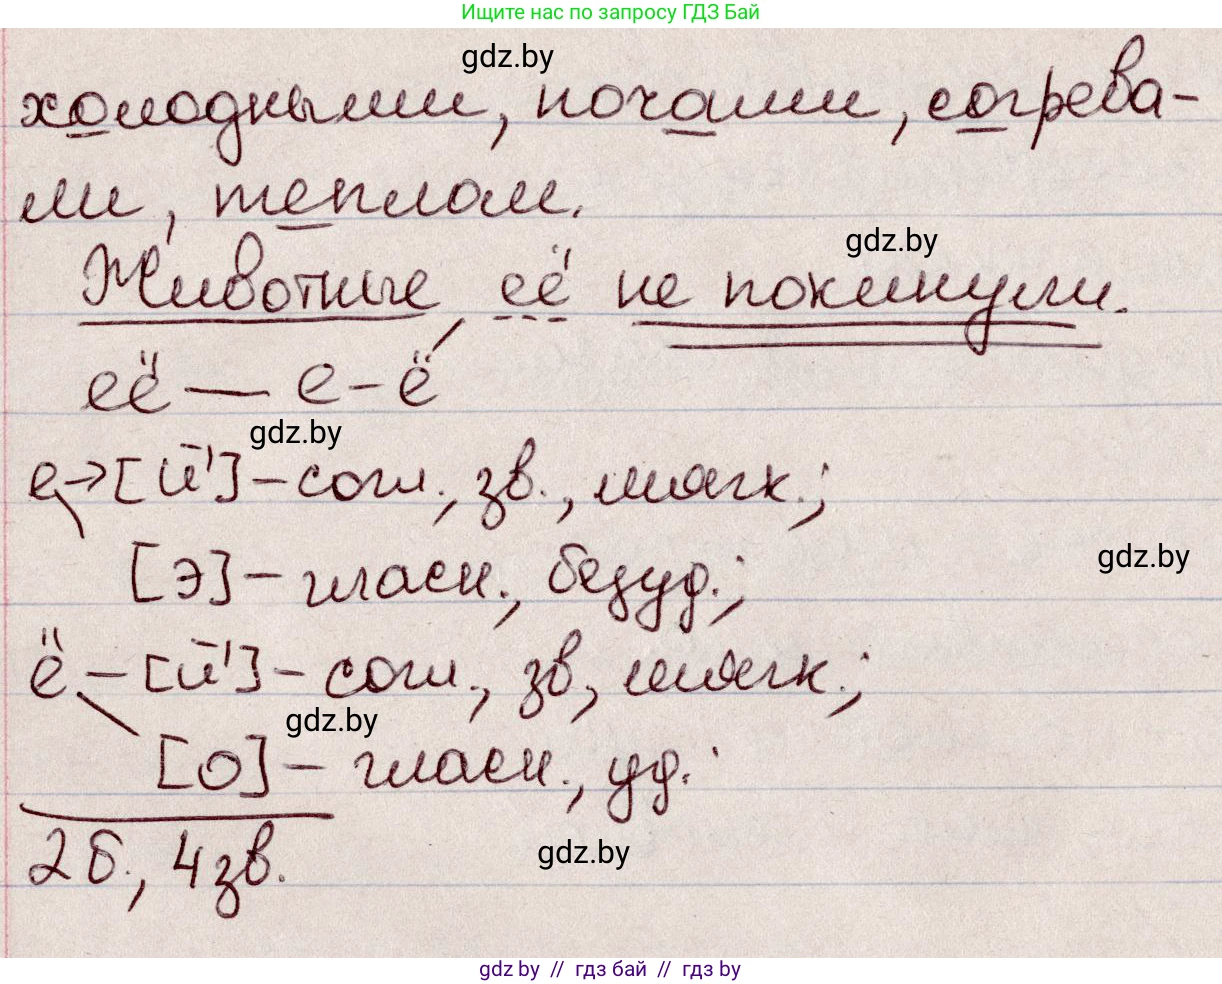 Ищите нас по запросу ГДЗ Бай
gdz.by
холодными, ночами, согрева-
ли, теплом.
gdz.by
Животные её не покинули.
её — е-ё
gdz.by
е→[й'] - согл., зв., мягк.;
[э] - гласн., безуд.;
gdz.by
ё - [й'] - согл., зв, мягк.;
gdz.by
[о] - гласн., уд.
2б., 4зв.
gdz.by
gdz by // гдз бай // гдз by